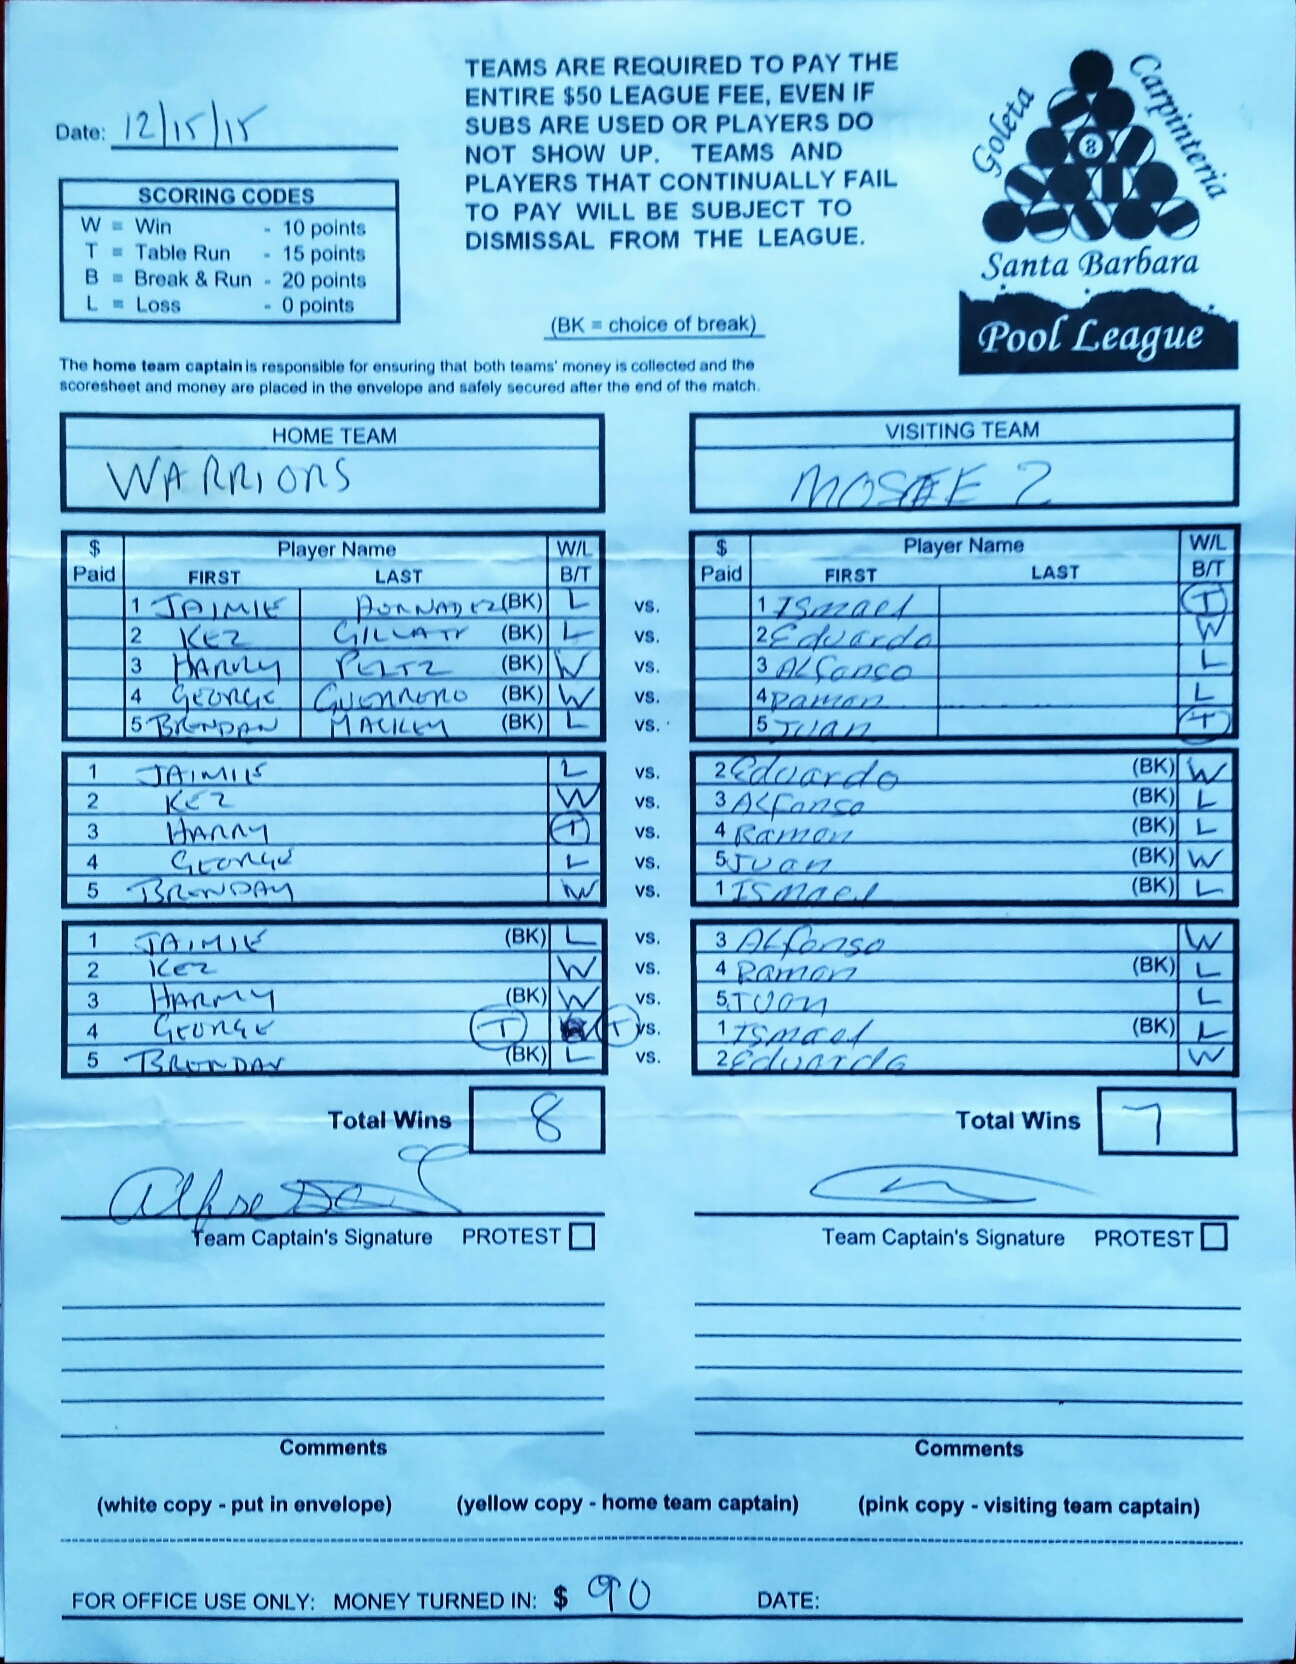 TEAMS ARE REQUIRED TO PAY THE
ENTIRE $50 LEAGUE FEE, EVEN IF
SUBS ARE USED OR PLAYERS DO
NOT SHOW UP. TEAMS AND
PLAYERS THAT CONTINUALLY FAIL
TO PAY WILL BE SUBJECT TO
DISMISSAL FROM THE LEAGUE.
Goleta
Carpinteria
8
Santa Barbara
Pool League
Date: 12/15/15
SCORING CODES
W = Win - 10 points
T = Table Run - 15 points
B = Break & Run - 20 points
L = Loss - 0 points
(BK = choice of break)
The home team captain is responsible for ensuring that both teams' money is collected and the
scoresheet and money are placed in the envelope and safely secured after the end of the match.
HOME TEAM VISITING TEAM
WARRIORS 2
$ Player Name W/L $ Player Name W/L
Paid FIRST LAST B/T Paid FIRST LAST B/T
1 JAIMIE (BK) L vs. 1 Ismael T
2 KEZ (BK) L vs. 2 Eduardo W
3 HARRY PELTZ (BK) W vs. 3 ALfonso L
4 GEORGE GUERRERO (BK) W vs. 4 Ramon L
5 BRENDAN (BK) L vs. 5 Juan T
1 JAIMIE L vs. 2 Eduardo (BK) W
2 KEZ W vs. 3 ALfonso (BK) L
3 HARRY T vs. 4 Ramon (BK) L
4 GEORGE L vs. 5 Juan (BK) W
5 BRENDAN W vs. 1 ISmael (BK) L
1 JAIMIE (BK) L vs. 3 ALfonso W
2 KEZ W vs. 4 Ramon (BK) L
3 HARRY (BK) W vs. 5 Juan L
4 GEORGE T T vs. 1 Ismael (BK) L
5 BRENDAN (BK) L vs. 2 Eduardo W
Total Wins 8 Total Wins 7
Team Captain's Signature PROTEST Team Captain's Signature PROTEST
Comments Comments
(white copy - put in envelope) (yellow copy - home team captain) (pink copy - visiting team captain)
FOR OFFICE USE ONLY: MONEY TURNED IN: $ 90 DATE: